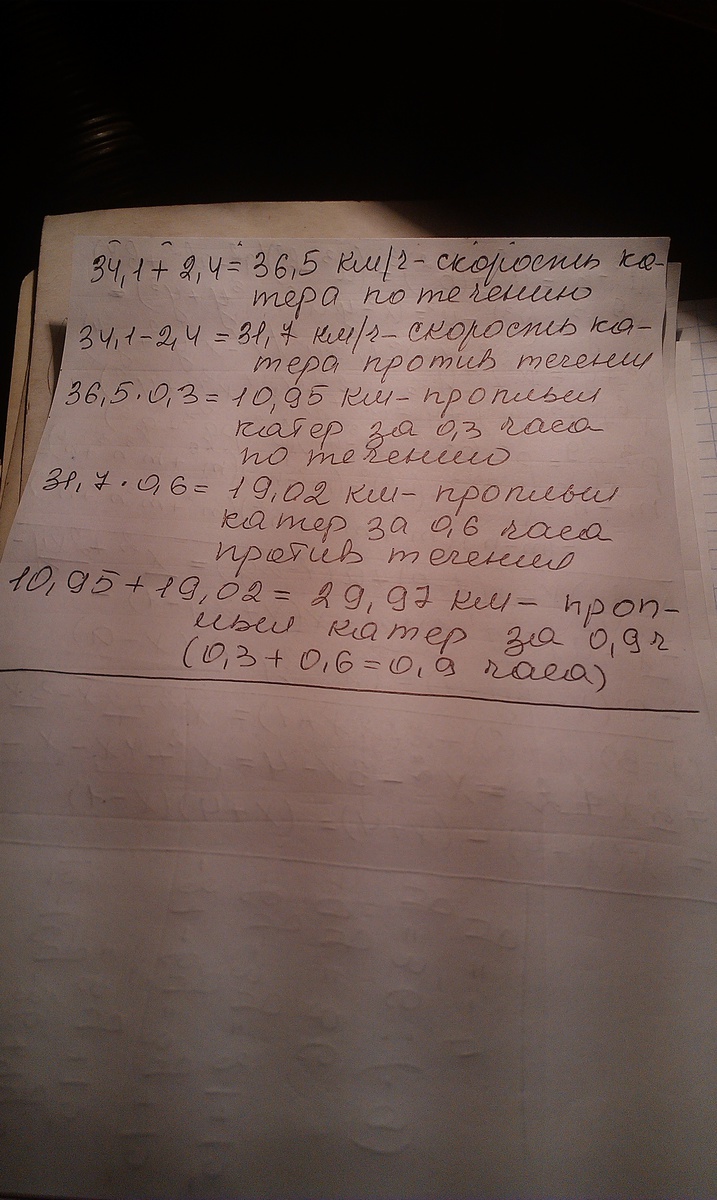 34,1 + 2,4 = 36,5 км/ч - скорость ка-
тера по течению
34,1 - 2,4 = 31,7 км/ч - скорость ка-
тера против течения
36,5 · 0,3 = 10,95 км - проплыл
катер за 0,3 часа
по течению
31,7 · 0,6 = 19,02 км - проплыл
катер за 0,6 часа
против течения
10,95 + 19,02 = 29,97 км - проп-
лыл катер за 0,9 ч
(0,3 + 0,6 = 0,9 часа)